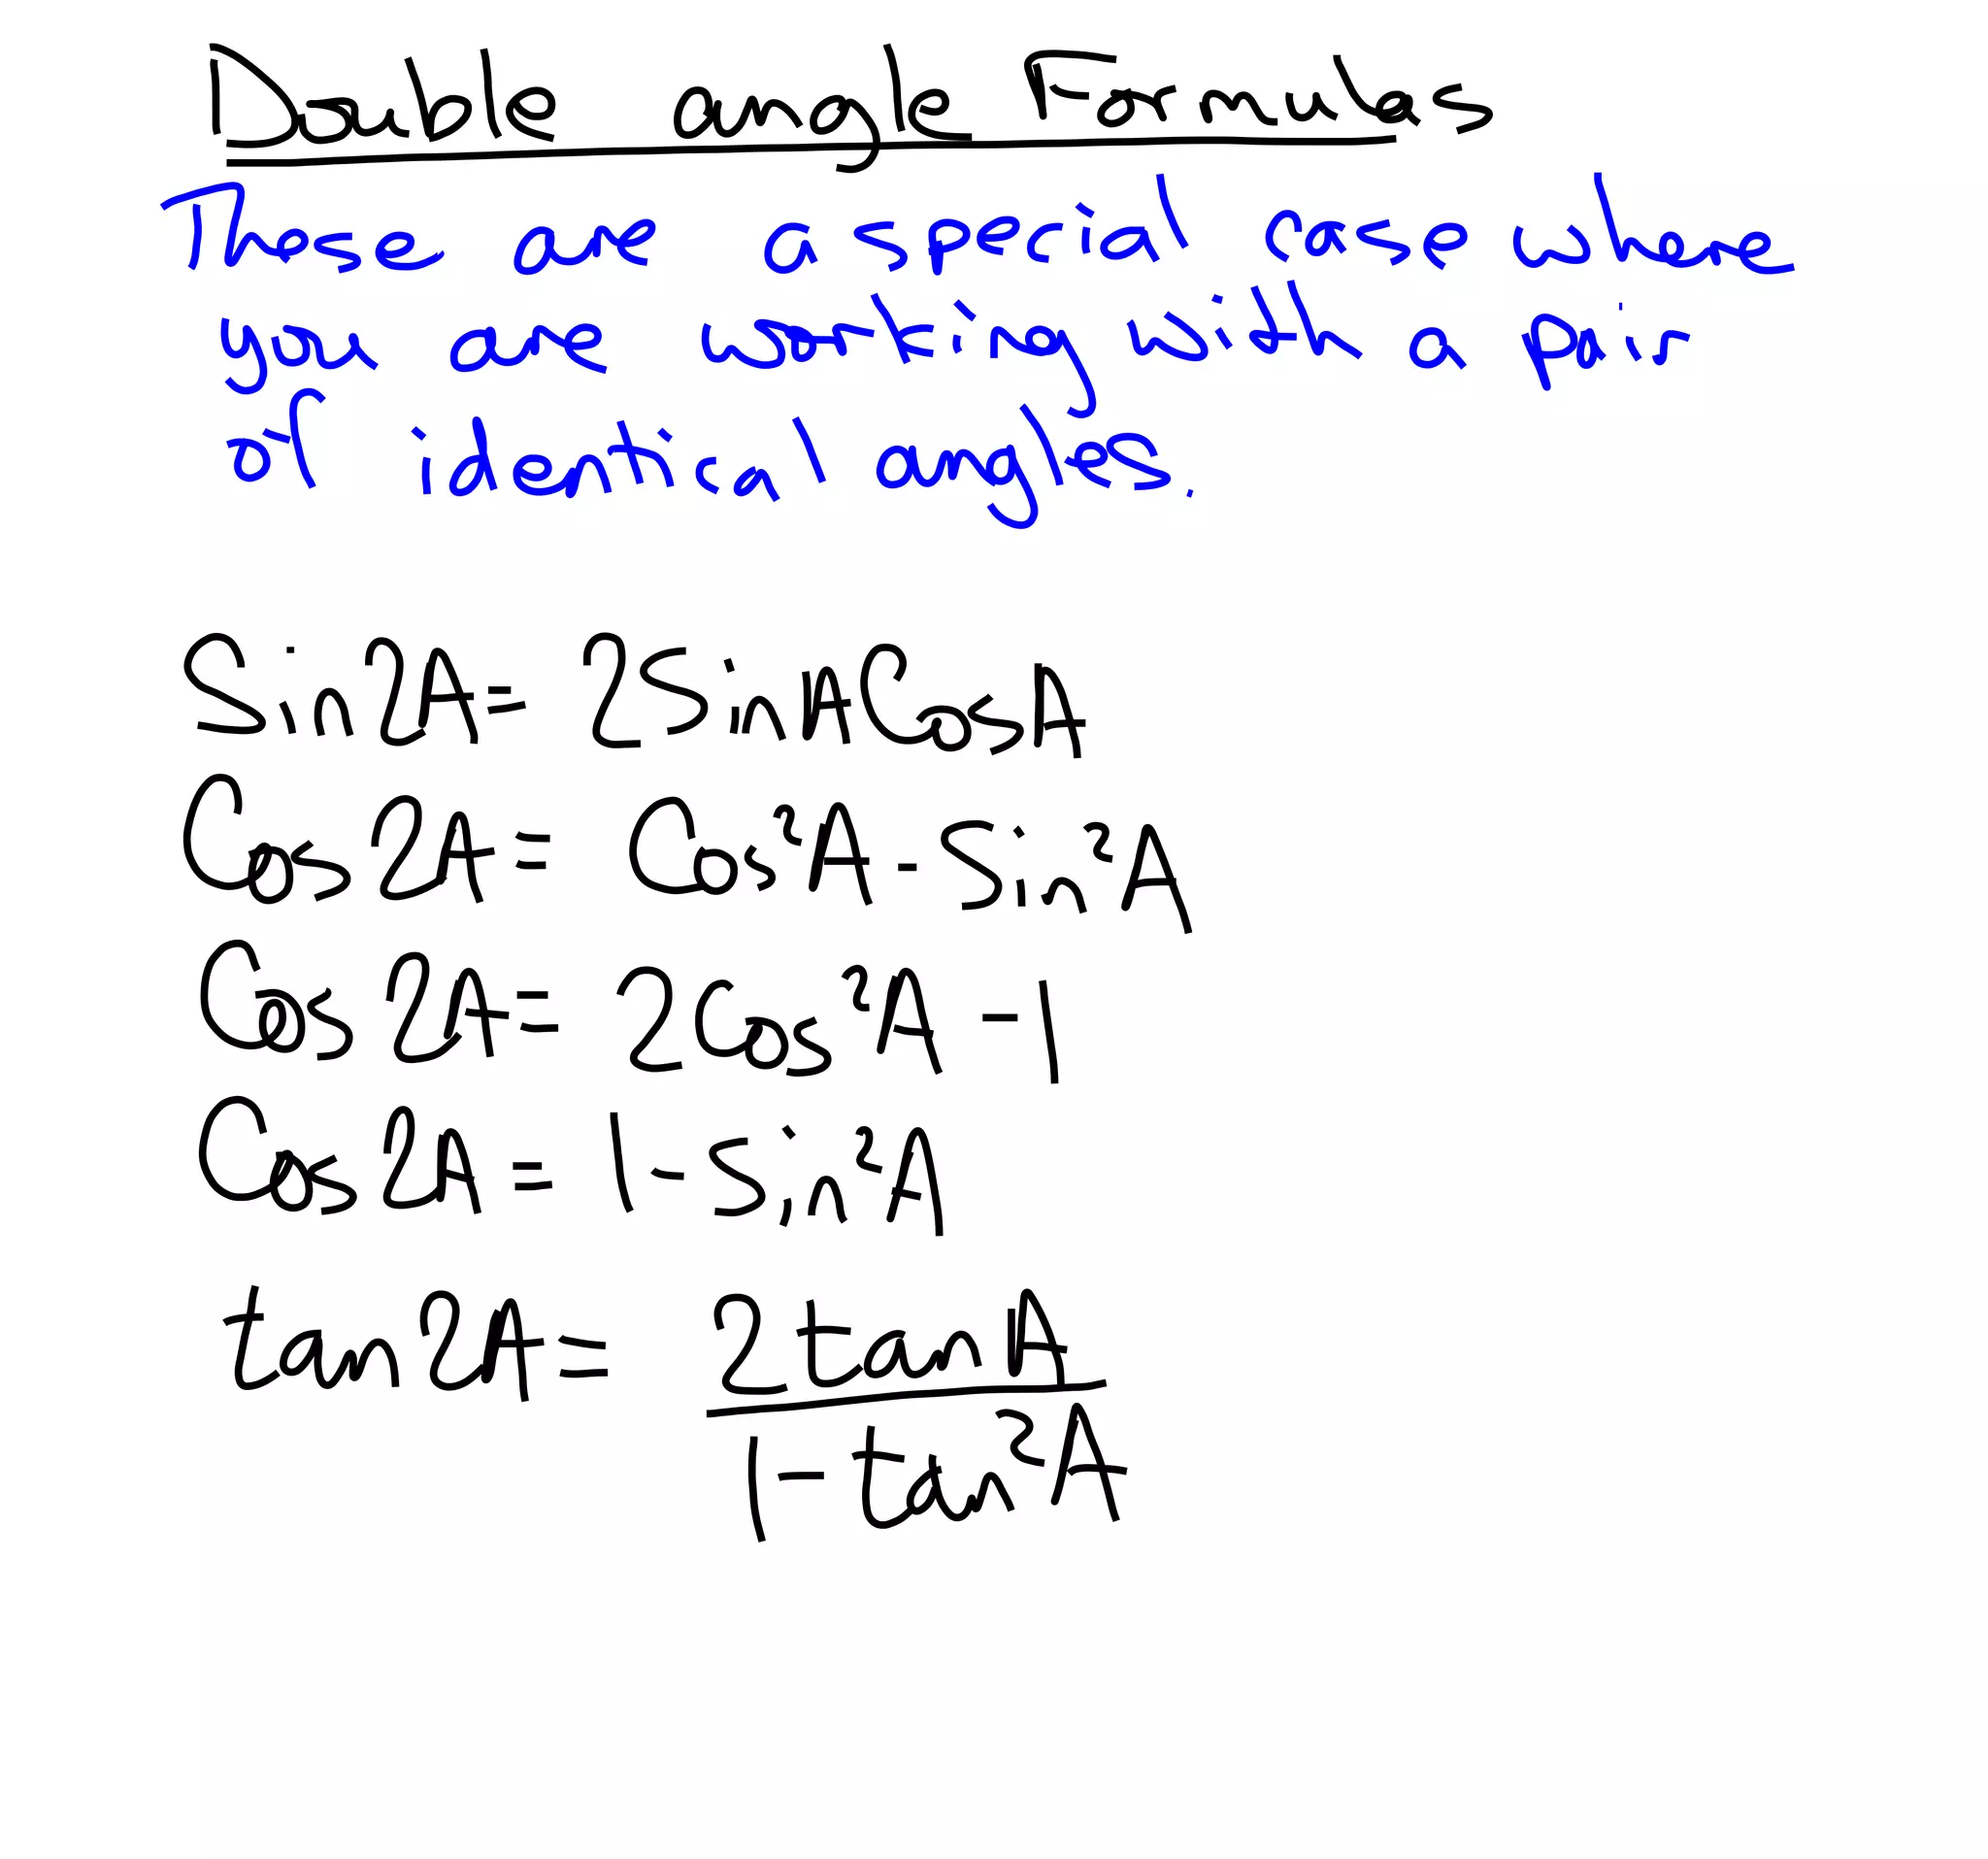 Double angle Formulas
These are a special case where
you are working with a pair
of identical angles.
Sin2A = 2SinACosA
Cos2A = Cos²A - Sin²A
Cos2A = 2Cos²A - 1
Cos2A = 1 - Sin²A
tan2A = 2tanA
1 - tan²A